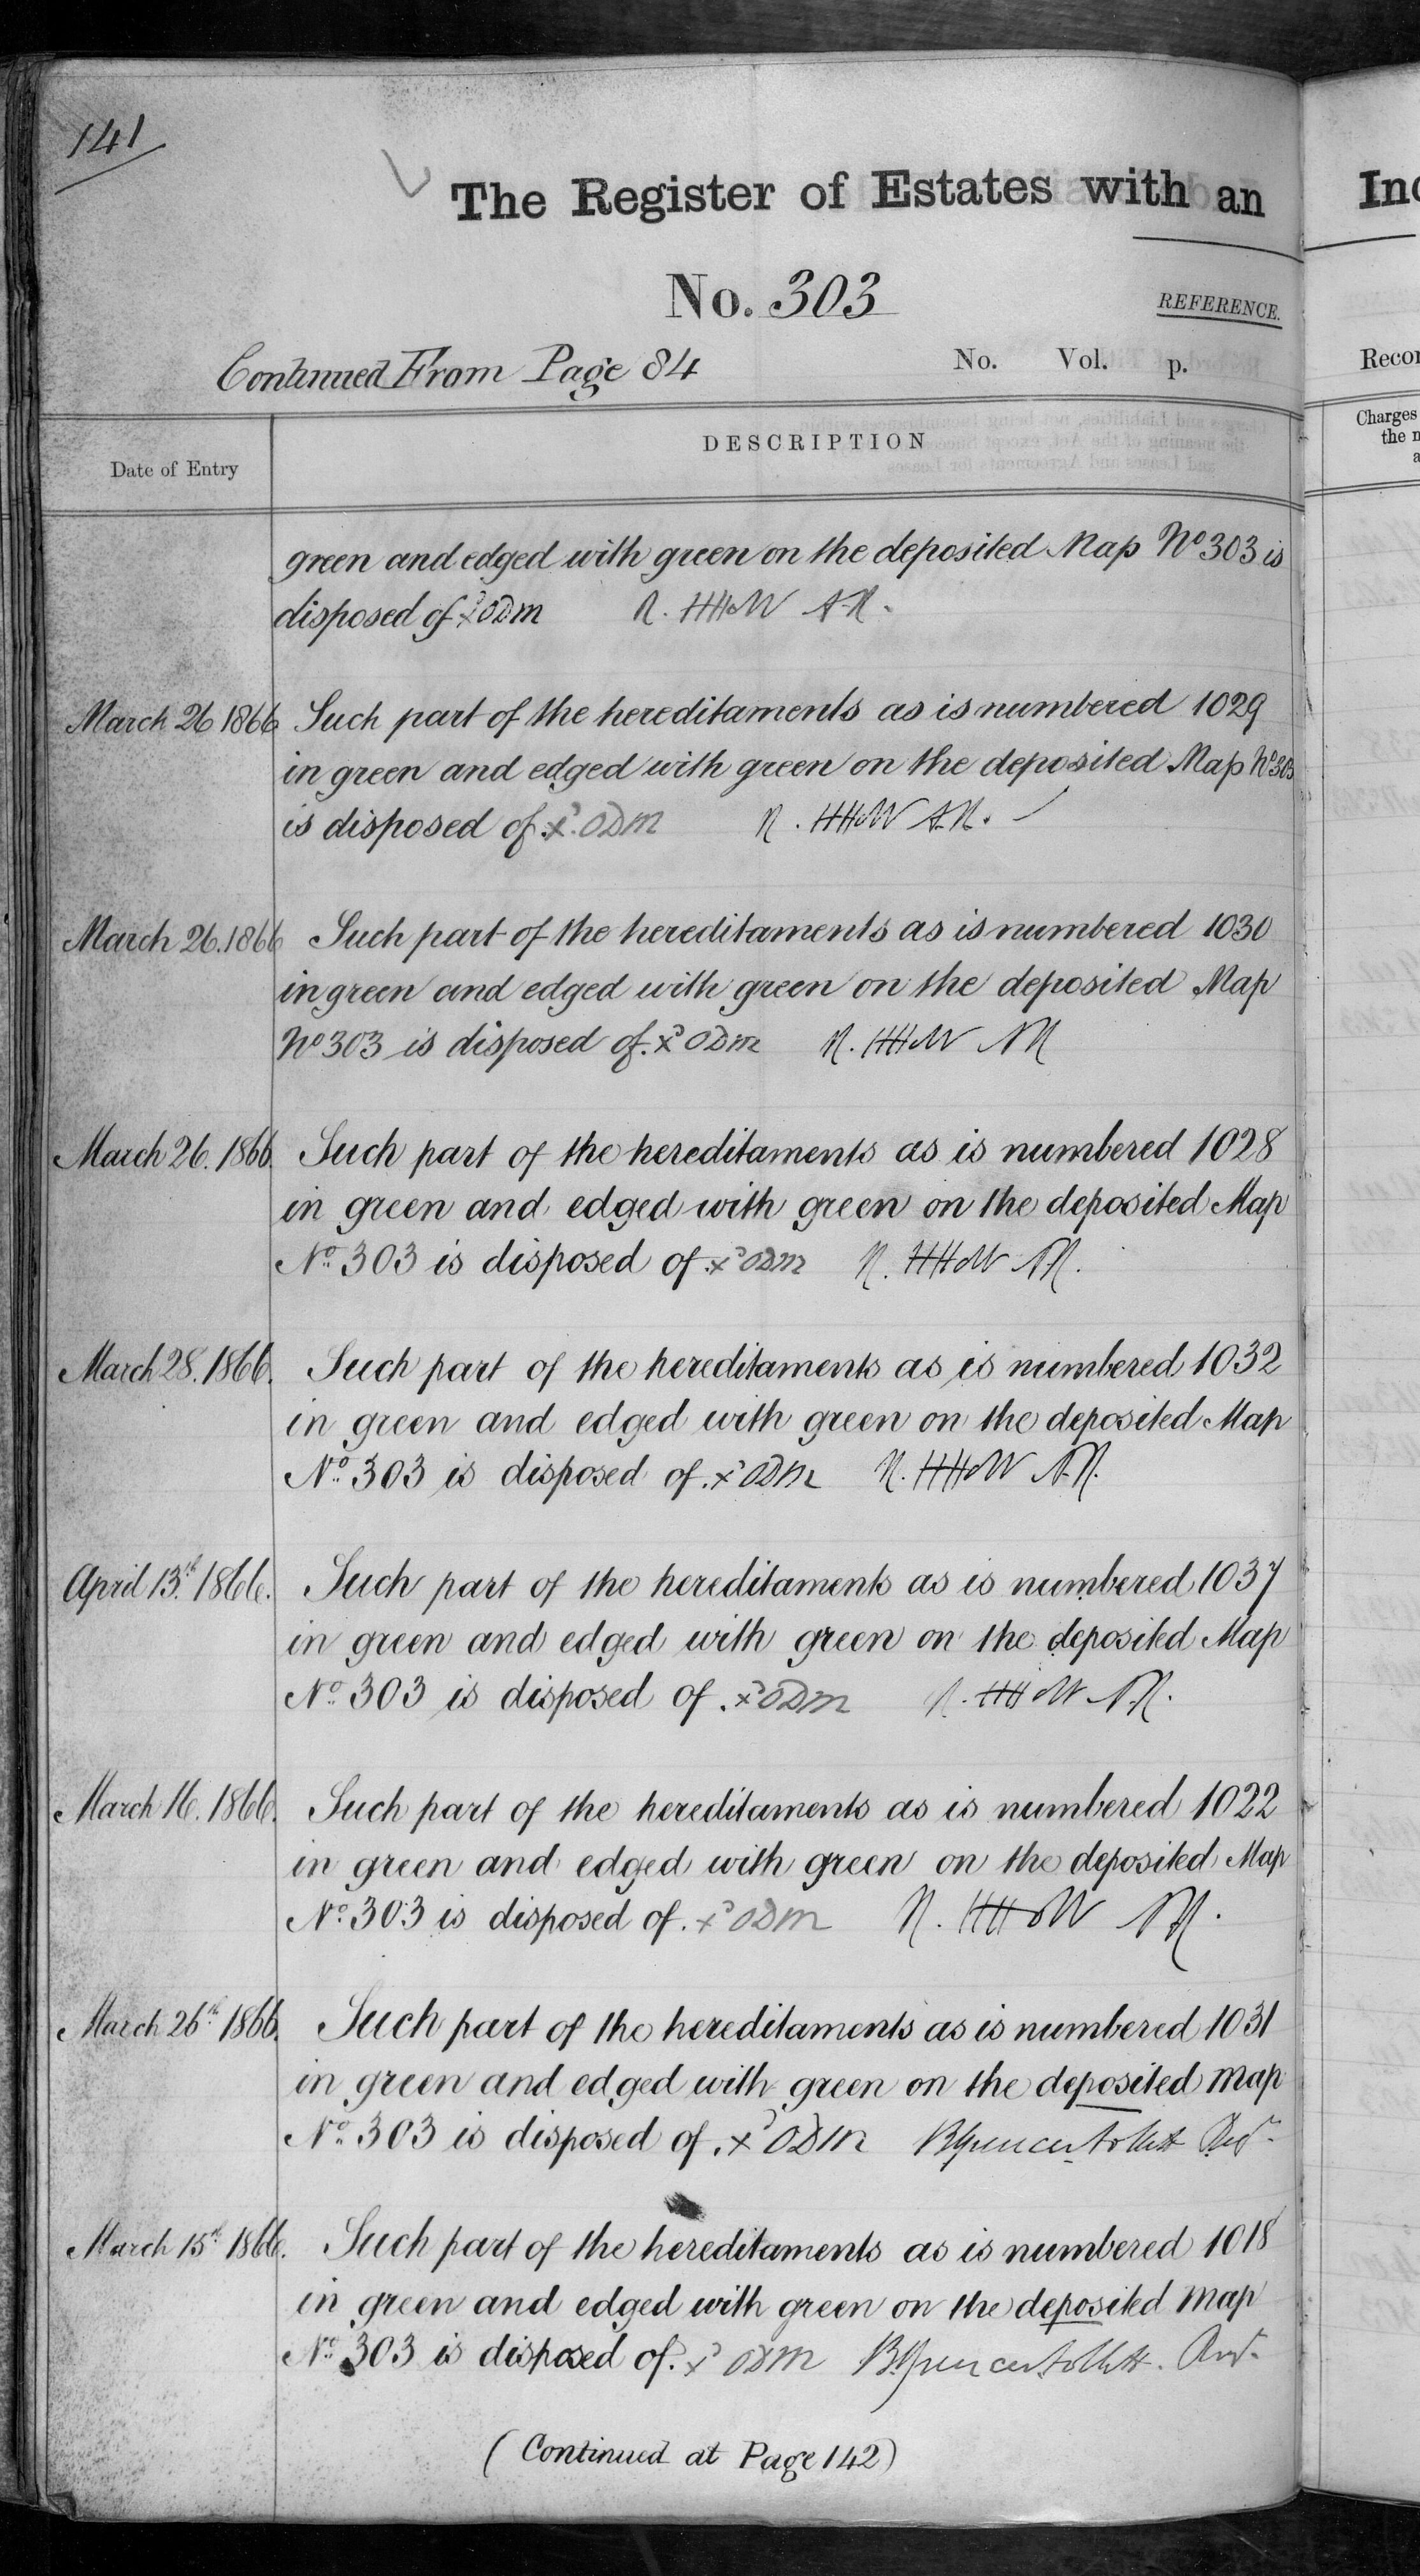 141
The Register of Estates with an
No. 303
REFERENCE.
Continued From Page 84
No. Vol. p.
Date of Entry
DESCRIPTION
green and edged with green on the deposited Map No 303 is
disposed of
March 26 1866 Such part of the hereditaments as is numbered 1029
in green and edged with green on the deposited Map No 303
is disposed of
March 26. 1866 Such part of the hereditaments as is numbered 1030
in green and edged with green on the deposited Map
No 303 is disposed of.
March 26. 1866. Such part of the hereditaments as is numbered 1028
in green and edged with green on the deposited Map
No. 303 is disposed of
March 28. 1866. Such part of the hereditaments as is numbered 1032
in green and edged with green on the deposited Map
No. 303 is disposed of.
April 13th 1866. Such part of the hereditaments as is numbered 1037
in green and edged with green on the deposited Map
No. 303 is disposed of.
March 16. 1866. Such part of the hereditaments as is numbered 1022
in green and edged with green on the deposited Map
No. 303 is disposed of.
March 26th 1866. Such part of the hereditaments as is numbered 1031
in green and edged with green on the deposited map
No. 303 is disposed of.
March 15th 1866. Such part of the hereditaments as is numbered 1018
in green and edged with green on the deposited map
No. 303 is disposed of.
(Continued at Page 142)
Charges